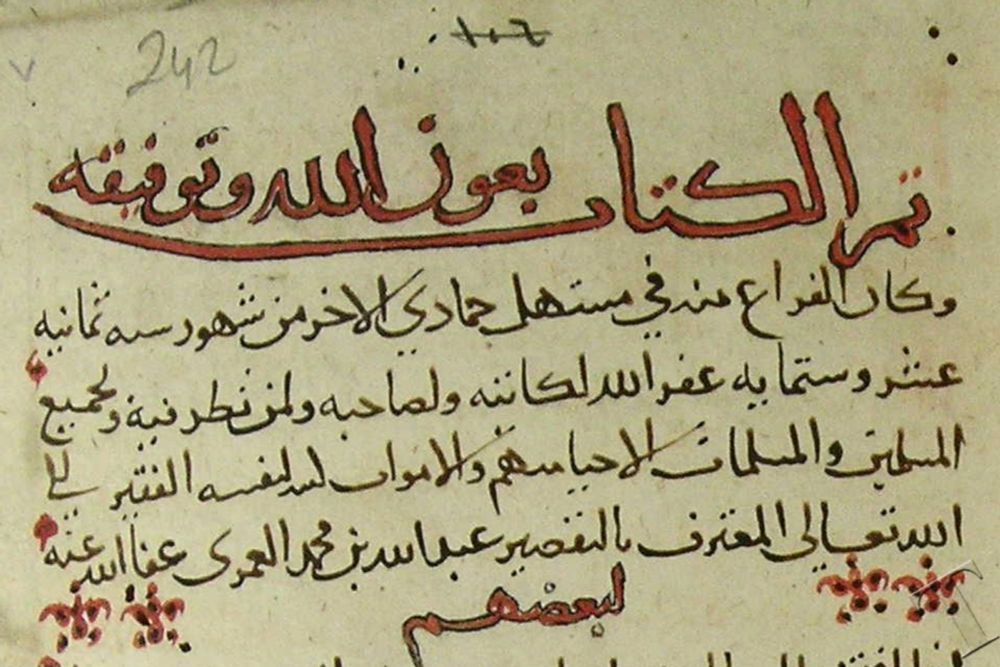 242
تم الكتاب بعون الله وتوفيقه
وكان الفراغ منه في مستهل جمادي الاخر من شهور سنه ثمانيه
عشر وستمايه غفر الله لكاتبه ولصاحبه ولمن نظر فيه ولجميع
المسلمين والمسلمات الاحيا منهم والاموات لنفسه الفقير الي
الله تعالى المعترف بالتقصير عبد الله بن محمد العمري عفا الله عنه
لبعضهم